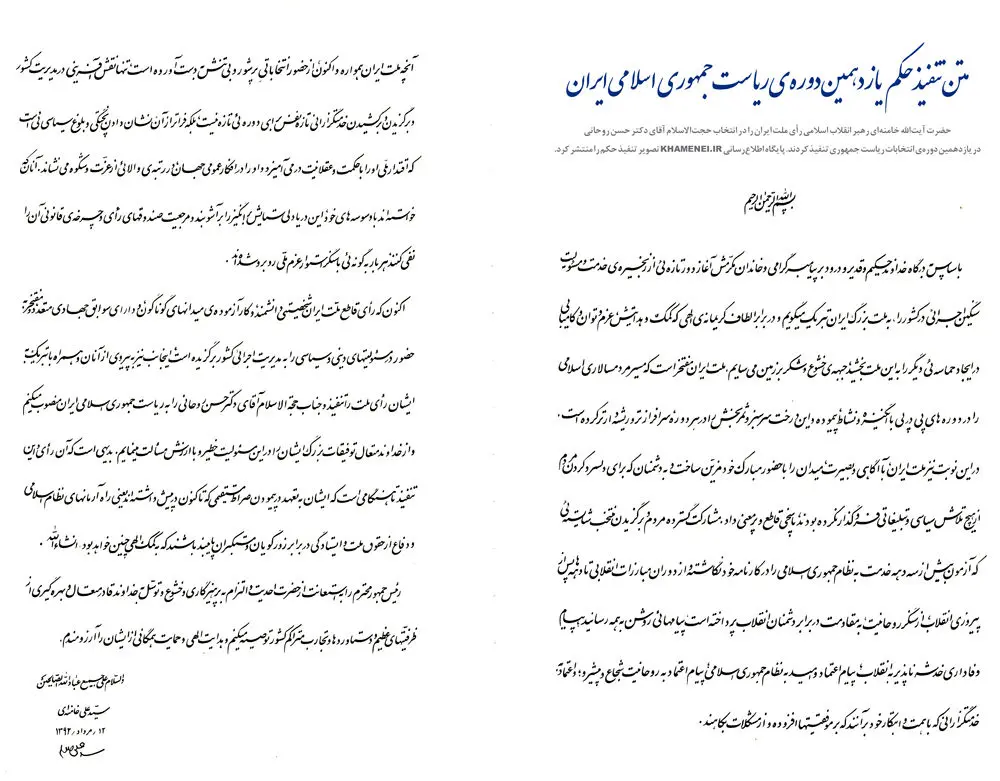 متن تنفیذ حکم یازدهمین دوره‌ی ریاست جمهوری اسلامی ایران
حضرت آیت‌الله خامنه‌ای رهبر انقلاب اسلامی رأی ملت ایران را در انتخاب حجت‌الاسلام آقای دکتر حسن روحانی
در یازدهمین دوره‌ی انتخابات ریاست جمهوری تنفیذ کردند. پایگاه اطلاع‌رسانی KHAMENEI.IR تصویر تنفیذ حکم را منتشر کرد.
بسم‌الله‌الرحمن‌الرحیم
با سپاس به درگاه خداوند حکیم و قدیر و درود بر پیامبر گرامی و خاندان مکرمش آغاز دور تازه ئی از زنجیره‌ی خدمت و مسئولیت
سنگین اجرائی در کشور را، به ملت بزرگ ایران تبریک میگویم و در برابر الطاف کریمانه‌ی الهی که کمک و هدایتش عزم و توان و کامیابی
در ایجاد حماسه ئی دیگر را به این ملت بخشید جبهه‌ی خشوع و شکر بر زمین می سایم. ملت ایران مفتخر است که مسیر مردم سالاری اسلامی
را در دوره های پی در پی با انگیزه و نشاط پیموده و این درخت سرسبز و ثمربخش را در هر دوره سرافرازتر و ریشه دارتر کرده است.
در این نوبت نیز ملت ایران با آگاهی و بصیرت میدان را با حضور مبارک خود مزین ساخت و به دشمنان که برای دلسرد کردن مردم
از هیچ تلاش سیاسی و تبلیغاتی فروگذار نکرده بودند پاسخی قاطع و پرمعنی داد. مشارکت گسترده مردم و برگزیدن منتخب شایسته‌ئی
که آزمون بیش از سه دهه خدمت به نظام جمهوری اسلامی را در کارنامه خود نگاشته و از دوران مبارزات انقلابی تا دهه های پس از
پیروزی انقلاب از سنگر روحانیت به مقاومت در برابر دشمنان انقلاب پرداخته است پیامهائی روشن به همه رسانید: پیام
وفاداری خدشه ناپذیر به انقلاب، پیام اعتماد و امید به نظام جمهوری اسلامی، پیام اعتماد به روحانیت شجاع و پیشرو؛ و اعتماد به
خدمتگزارانی که با همت و ابتکار خود برآنند که بر موفقیتها افزوده و از مشکلات بکاهند.
آنچه ملت ایران همواره و اکنون از حضور انتخاباتی پرشور و بی تنش بدست آورده است تنها نقش آفرینی در مدیریت کشور
و برگزیدن و برکشیدن خدمتگزارانی تازه نفس برای دوره ئی تازه نیست بلکه فراتر از آن نشان دادن پختگی و بلوغ سیاسی ئی است
که اقتدار ملی او را با حکمت و عقلانیت درمی آمیزد و او را در افکار عمومی جهان در رتبه‌ی والائی از عزت و شکوه می نشاند. آنان که
خواسته اند با وسوسه های خود این دریادلی ستایش انگیز را برآشوبند و مرجعیت صندوقهای رأی و چرخه‌ی قانونی آن را
نفی کنند هر بار به گونه ئی با سنگر استوار عزم ملی روبرو شده اند.
اکنون که رأی قاطع ملت ایران شخصیتی دانشمند و کارآزموده‌ی میدانهای گوناگون و دارای سوابق جهادی متعدد و مفتخر به
حضور در مسئولیتهای دینی و سیاسی را به مدیریت اجرائی کشور برگزیده است اینجانب نیز به پیروی از آنان و همراه با تبریک به
ایشان رأی ملت را تنفیذ و جناب حجةالاسلام آقای دکتر حسن روحانی را به ریاست جمهوری اسلامی ایران منصوب میکنم
و از خداوند متعال توفیقات بزرگ ایشان را در این مسئولیت خطیر و باارزش مسألت مینمایم. بدیهی است که آن رأی و این
تنفیذ تا هنگامی است که ایشان به تعهد در پیمودن صراط مستقیمی که تاکنون در پیش داشته اند یعنی راه آرمانهای نظام اسلامی
و دفاع از حقوق ملت و ایستادگی در برابر زورگویان و مستکبران پایبند باشند که به کمک الهی چنین خواهد بود. انشاءالله.
رئیس جمهور محترم را به استعانت از حضرت احدیت و التزام به پرهیزگاری و خشوع و توسل به خداوند قادر متعال و بهره گیری از
ظرفیتهای عظیم و دستاوردها و تجارب متراکم کشور توصیه میکنم و هدایت الهی و حمایت همگانی از ایشان را آرزومندم.
والسلام علی جمیع عبادالله الصالحین
سیدعلی خامنه‌ای
۱۲ / مرداد / ۱۳۹۲